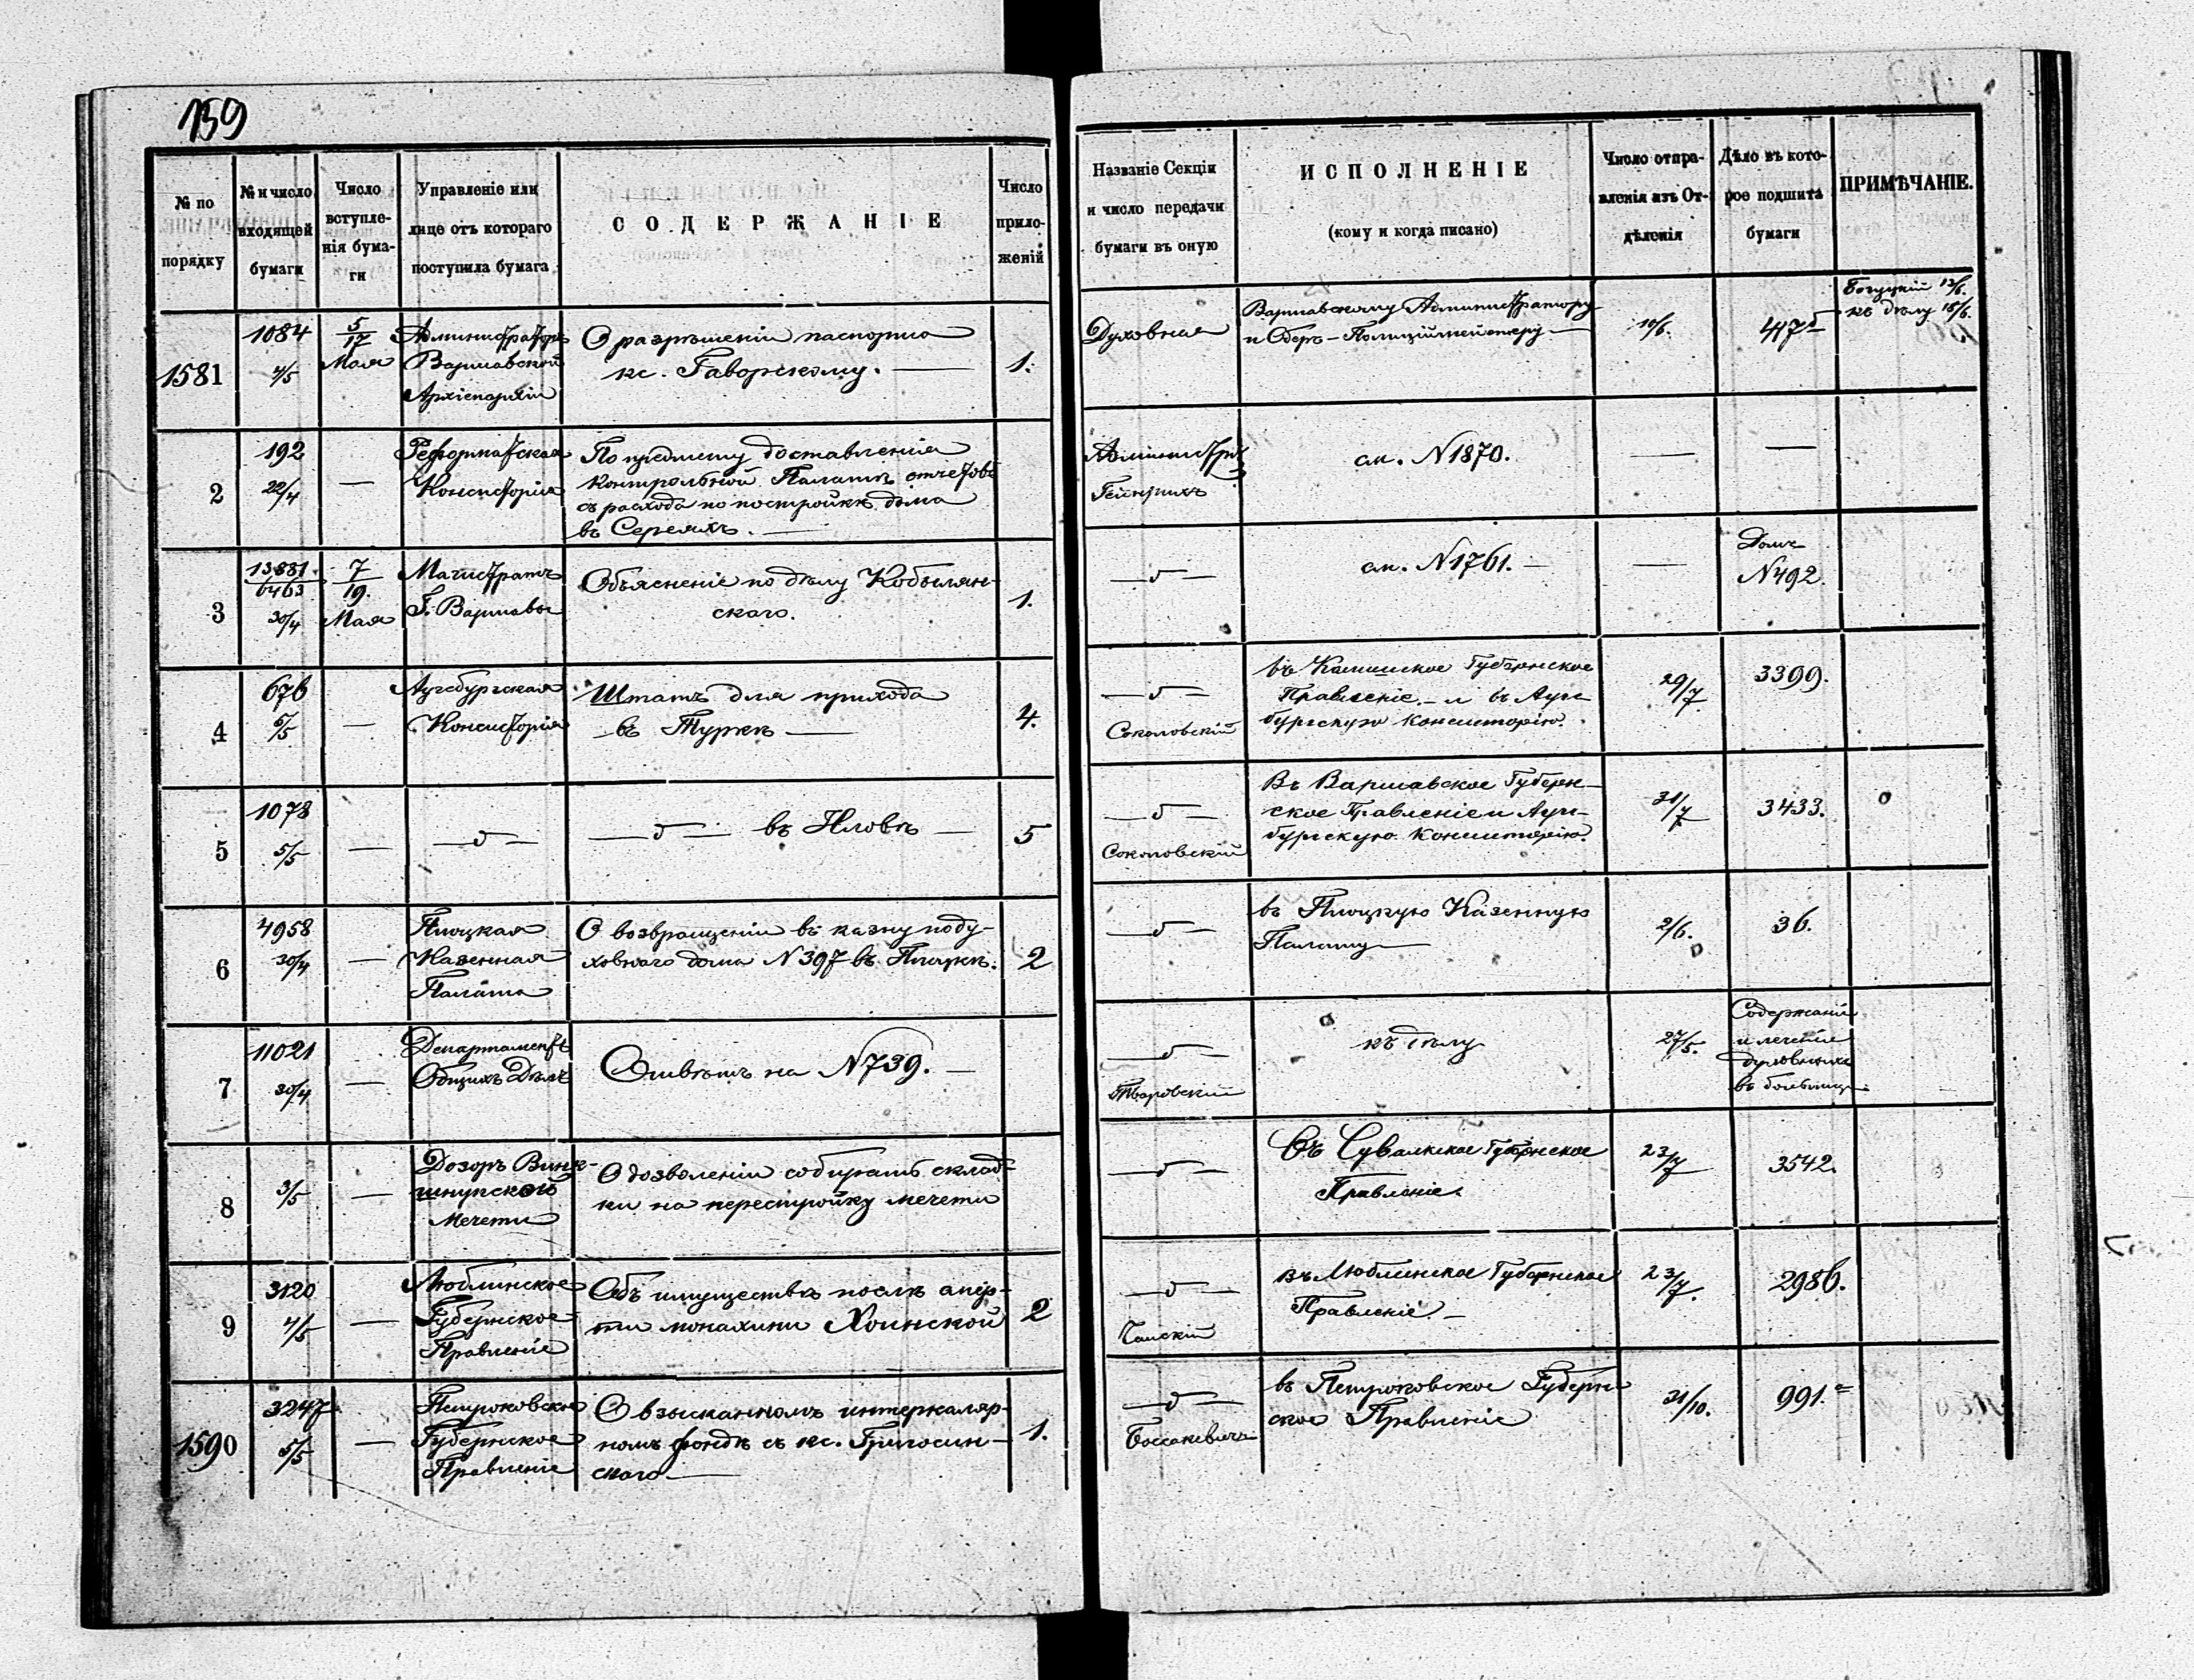 159
№ по порядку
№ и число входящей бумаги
Число вступле-нія бума-ги
Управленіе или лице отъ котораго поступила бумага
СОДЕРЖАНІЕ
Число прило-женій
Названіе Секціи и число передачи бумаги въ оную
ИСПОЛНЕНІЕ
(кому и когда писано)
Число отпра-вленія изъ От-дѣленія
Дѣло въ кото-рое подшита бумаги
ПРИМѢЧАНІЕ.
1581
1084
4/5
5/17
Мая
Администраторъ
Варшавской
Архіепархіи
О разрѣшеніи паспорта
кс. Гаворскому.
1.
Духовная
Варшавскому Администратору
и Оберъ-Полиціймейстеру
10/6.
417
Богуцкій 13/6.
къ дѣлу 15/6.
2
192
22/4
—
Реформатская
Консисторія
По предмету доставленія
контрольной Палатѣ отчетовъ
съ расхода по постройкѣ дома
въ Сереяхъ.
см. N 1870.
—
—
3
13881.
6463
30/4
7/19.
Мая
Магистратъ
Г. Варшавы
Объясненіе по дѣлу Кобылян-
скаго.
1.
—〃—
см. N 1761. —
—
N 492.
4
676
5/5
—
Аугсбургская
Консисторія
Штатъ для прихода
въ Туркѣ —
4.
—〃—
Соколовскій
въ Калишское Губернское
Правленіе. – и въ Ауг
бургскую Консисторію.
29/7
3399.
5
1078
5/5
—
—〃—
—〃— въ Иловѣ —
5
—〃—
Соколовскій
Въ Варшавское Губерн-
ское Правленіе и Ауг-
бургскую Консисторію
31/7
3433.
6
4958
30/4
—
Плоцкая
Казенная
Палата
О возвращеніи въ казну поду-
ховнаго дома N 397 въ Плоцкѣ.
2
—〃—
въ Плоцкую Казенную
Палату
2/6.
36.
7
11021
30/4
—
Департаментъ
Общихъ Дѣлъ
Отвѣтъ на N 739. —
—〃—
Тваровскій
къ дѣлу
27/5.
Содержаніе
и леченіе
духовныхъ
въ больниц
8
3/5
—
Дозоръ Винк-
шнупской
Мечети
О дозволеніи собирать склад-
ки на перестройку мечети
—〃—
Въ Сувалкское Губернское
Правленіе.
23/7
3542.
9
3120
4/5
—
Люблинское
Губернское
Правленіе
Объ имуществѣ послѣ смер-
ти монахини Хоинской
2
—〃—
въ Люблинское Губернское
Правленіе. –
23/7.
2986.
1590
3247
5/5
—
Петроковское
Губернское
Правленіе
О взысканномъ интеркаляр-
номъ фондѣ съ кс.
скаго —
1.
—〃—
въ Петроковское Губерн-
ское Правленіе
31/10.
991.